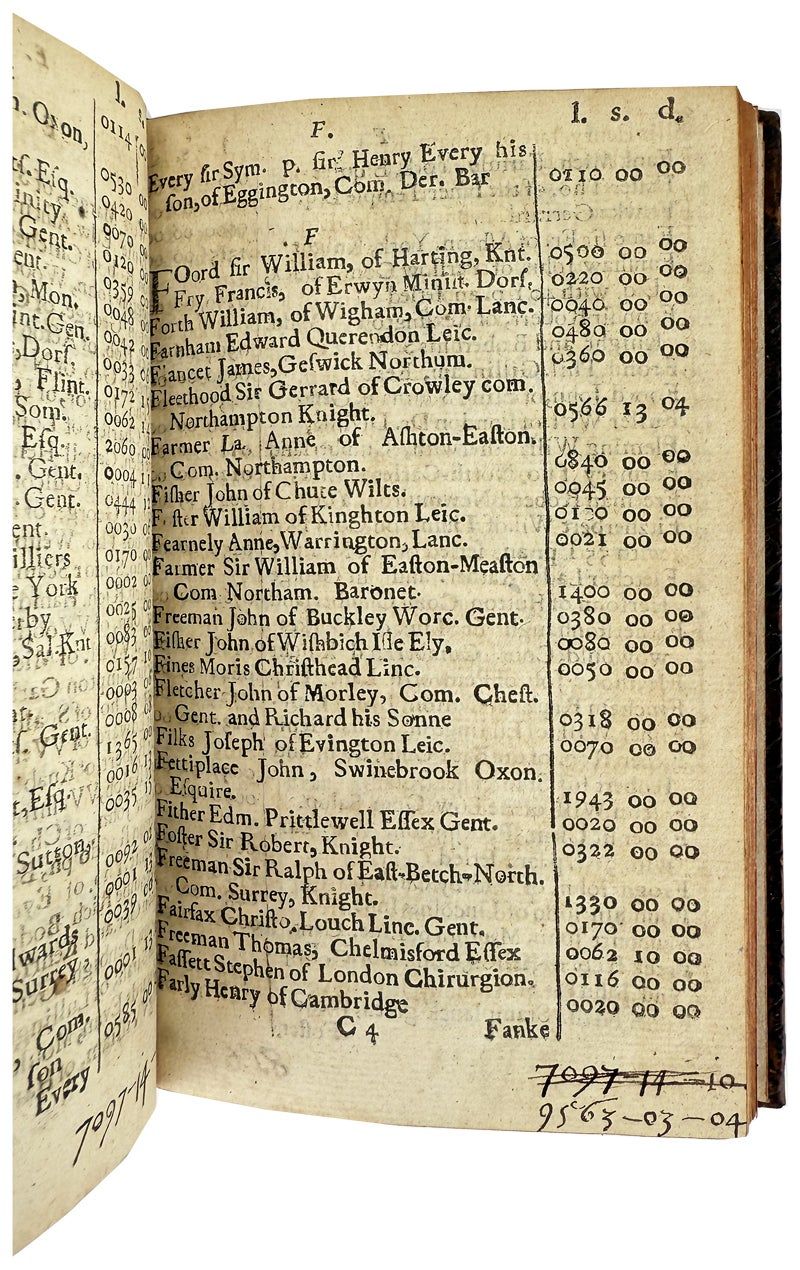 l. s.
n. Oxon, 0114
Esq. 0530
inity 0420
Gent. 0070
ent. 0120
, Mon. 0359
int.Gen. 0048
,Dorſ. 0042
, Flint. 0033
Som. 0172
Eſq. 0062
. Gent. 2060
. Gent. 0004
ent. 0444
illiers 0030
e York 0170
erby 0002
,Sal.Knt 0025
0083
0157
0003
Gent. 0008
1365
t,Eſq. 0016
0035
Sutton,
0092
0001
0039
wards
Surrey, 0001
Com.
ſon 0585
Every
7097-14-
F. l. s. d.
Every ſir Sym. p. ſir Henry Every his
ſon, of Eggington, Com. Der. Bar 0110 00 00
F
FOord ſir William, of Harting, Knt. 0500 00 00
Fry, Francis, of Erwyn Minſt. Dorſ. 0220 00 00
Forth William, of Wigham, Com. Lanc. 0040 00 00
Farnham Edward Querendon Leic. 0480 00 00
Fiancet James, Geſwick Northum. 0360 00 00
Fleethood Sir Gerrard of Crowley com.
Northampton Knight. 0566 13 04
Farmer La. Anne of Aſhton-Eaſton.
Com. Northampton. 0840 00 00
Fiſher John of Chute Wilts. 0045 00 00
F ſter William of Kinghton Leic. 00 00
Fearnely Anne, Warrington, Lanc. 0021 00 00
Farmer Sir William of Eaſton-Meaſton
Com Northam. Baronet. 1400 00 00
Freeman John of Buckley Worc. Gent. 0380 00 00
Fiſher John of Wiſhbich Iſle Ely, 0080 00 00
Fines Moris Chriſthead Linc. 0050 00 00
Fletcher John of Morley, Com. Cheſt.
Gent. and Richard his Sonne 0318 00 00
Filks Joſeph of Evington Leic. 0070 00 00
Fettiplace John, Swinebrook Oxon.
Eſquire. 1943 00 00
Fither Edm. Prittlewell Eſſex Gent. 0020 00 00
Foſter Sir Robert, Knight. 0322 00 00
Freeman Sir Ralph of Eaſt-Betch-North.
Com. Surrey, Knight. 1330 00 00
Fairfax Chriſto. Louch Linc. Gent. 0170 00 00
Freeman Thomas, Chelmisford Eſſex 0062 10 00
Faſſett Stephen of London Chirurgion. 0116 00 00
Farly Henry of Cambridge 0020 00 00
C 4 Fanke
7097-14-10
9563-03-04